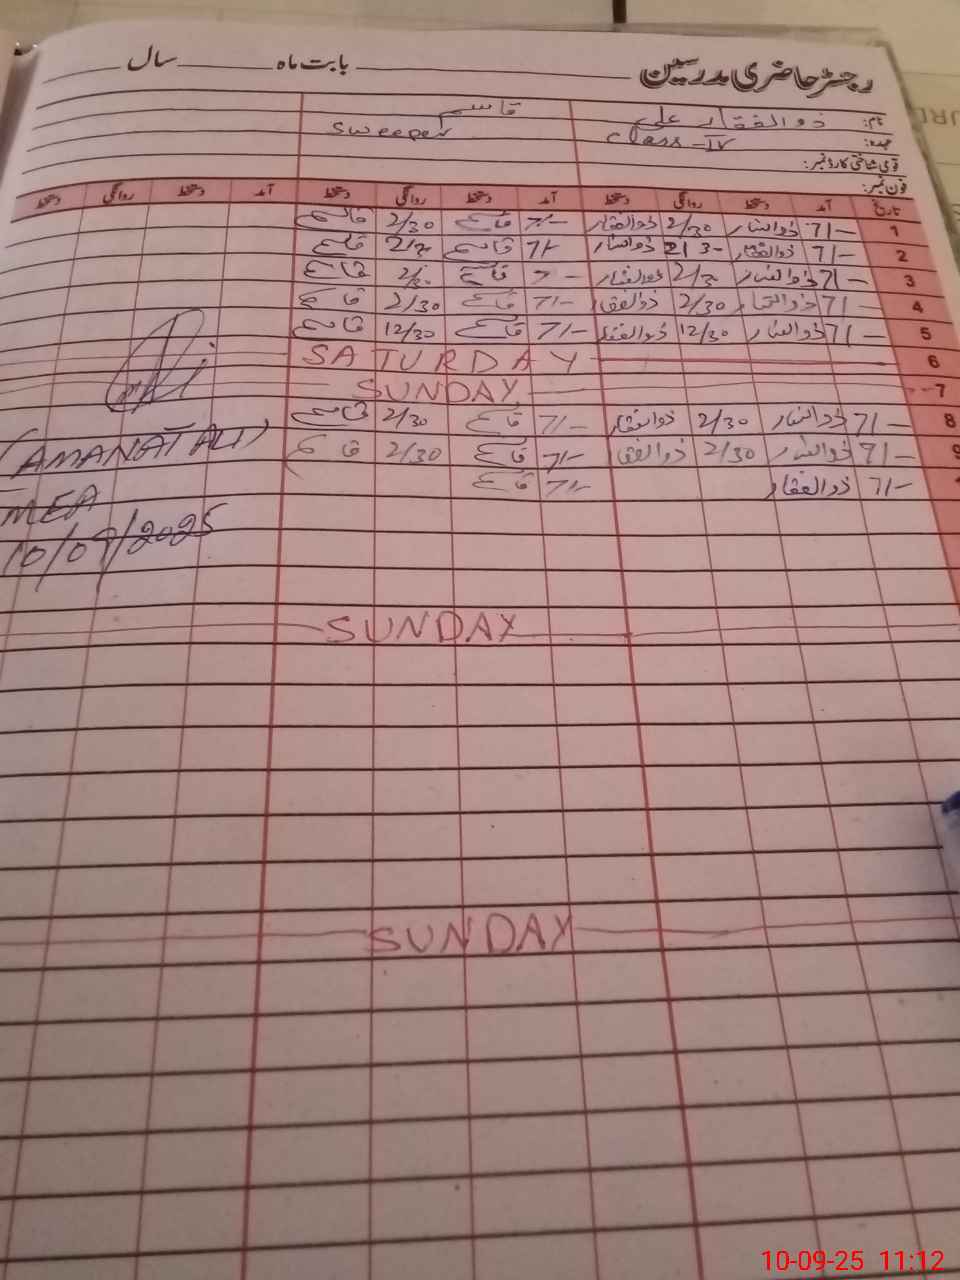 رجسٹر حاضری مدرسین ــــــ بابت ماہ ــــــ سال ــــــ
نام: ذوالفقار علی قاسم
عہدہ: Class-IV Sweeper
قومی شناختی کارڈ نمبر:
فون نمبر:
تاریخ آمد دستخط روانگی دستخط آمد دستخط روانگی دستخط آمد دستخط روانگی دستخط
1 7/- ذوالفقار 2/30 ذوالفقار 7/- قاسم 2/30 قاسم
2 7/- ذوالفقار 2/30 ذوالفقار 7/- قاسم قاسم
3 7/- ذوالفقار ذوالفقار قاسم قاسم
4 7/- ذوالفقار 2/30 ذوالفقار 7/- قاسم 2/30 قاسم
5 7/- ذوالفقار 12/30 ذوالفقار 7/- قاسم 12/30 قاسم
6 SATURDAY
7 SUNDAY
8 7/- ذوالفقار 2/30 ذوالفقار 7/- قاسم 2/30 قاسم
9 7/- ذوالفقار 2/30 ذوالفقار 7/- قاسم 2/30 قاسم
7/- ذوالفقار 7/- قاسم
(AMANAT ALI)
MEA
10/09/2025
SUNDAY
SUNDAY
10-09-25 11:12